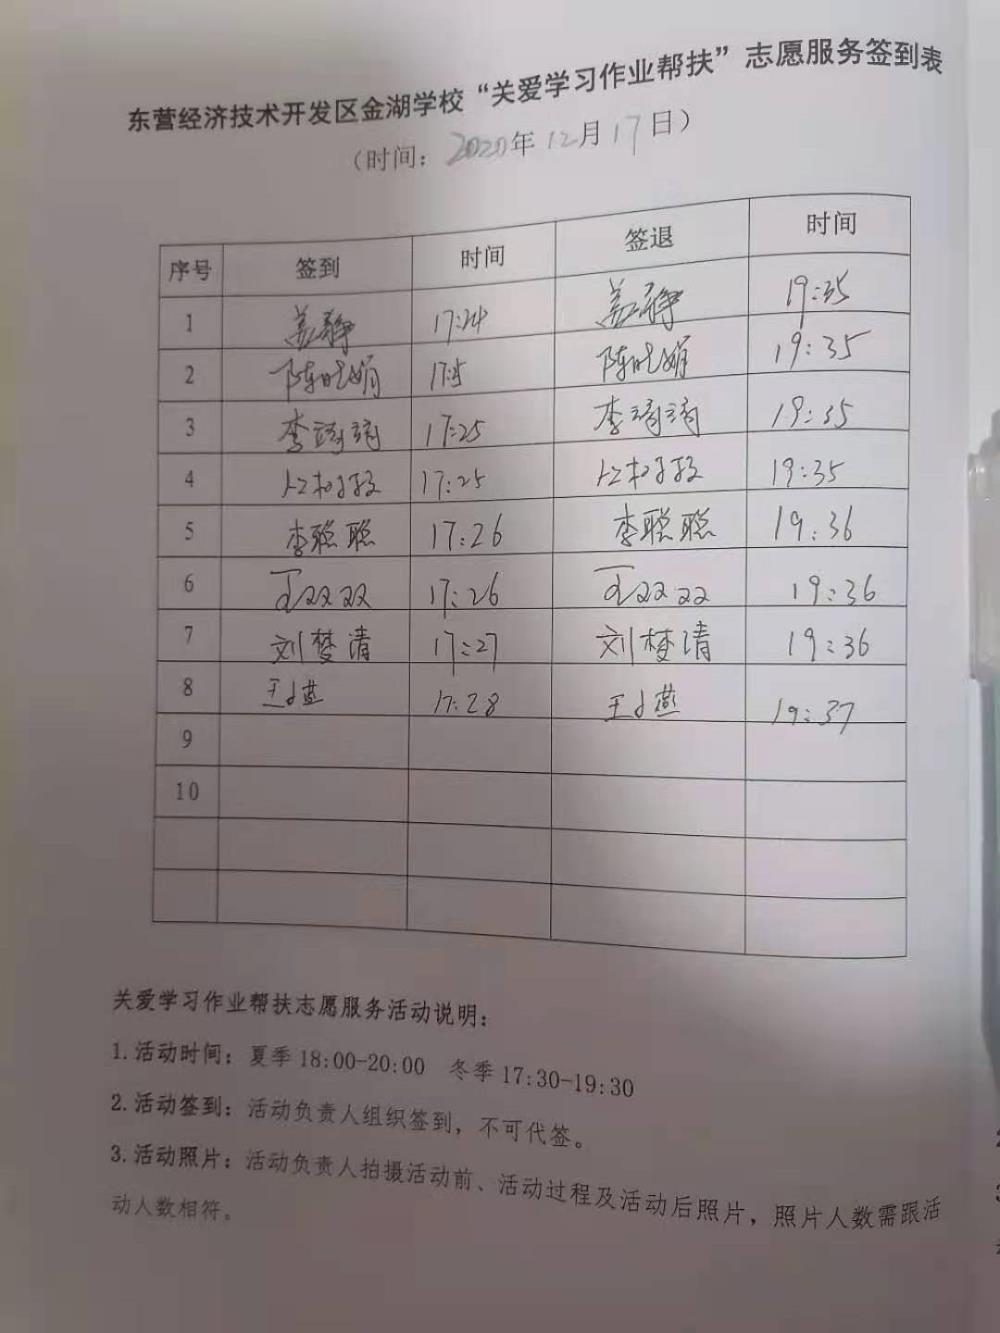 东营经济技术开发区金湖学校“关爱学习作业帮扶”志愿服务签到表
（时间：2020年12月17日）
序号 签到 时间 签退 时间
1 盖静 17:24 盖静 19:35
2 陈 娟 陈 娟 19:35
3 李 17:25 李 19:35
4 17:25 19:35
5 李聪聪 17:26 李聪聪 19:36
6 王双双 17:26 王双双 19:36
7 刘梦清 17:27 刘梦清 19:36
8 王小燕 17:28 王小燕 19:37
9
10
关爱学习作业帮扶志愿服务活动说明：
1.活动时间：夏季18:00-20:00 冬季17:30-19:30
2.活动签到：活动负责人组织签到，不可代签。
3.活动照片：活动负责人拍摄活动前、活动过程及活动后照片，照片人数需跟活
动人数相符。